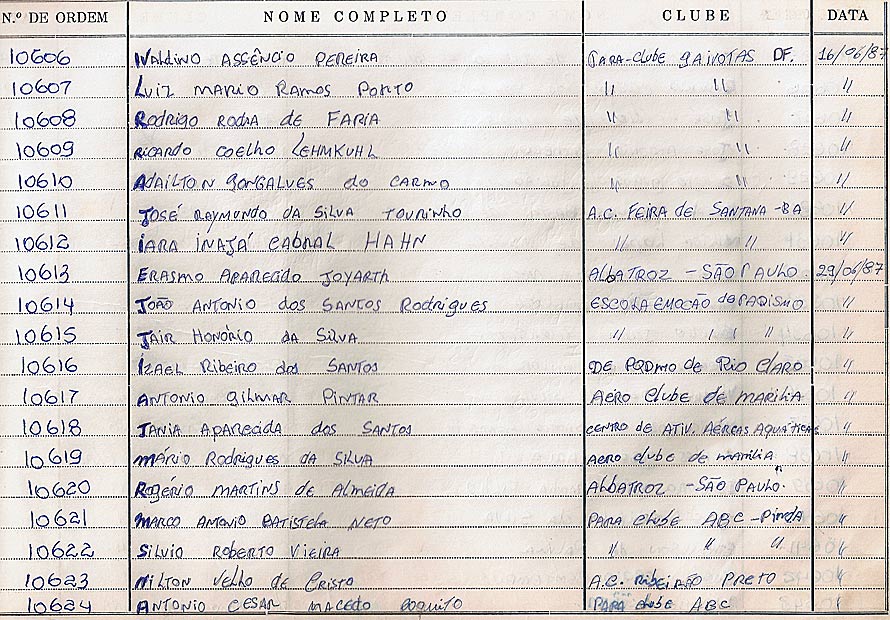 N.º DE ORDEM NOME COMPLETO CLUBE DATA
10606 WALDINO ASSÊNCIO PEREIRA PARA-CLUBE GAIVOTAS DF. 16/06/87
10607 LUIZ MARIO RAMOS PORTO " " "
10608 RODRIGO ROCHA DE FARIA " " "
10609 RICARDO COELHO LEHMKUHL " " "
10610 ADAILTON GONGALVES DO CARMO " " "
10611 JOSÉ RAYMUNDO DA SILVA TOURINHO A.C. FEIRA DE SANTANA -BA "
10612 IARA INAJÁ CABRAL HAHN " " "
10613 ERASMO APARECIDO JOYARTH ALBATROZ - SÃO PAULO 29/06/87
10614 JOÃO ANTONIO DOS SANTOS RODRIGUES ESCOLA EMOCÃO DE PQDISMO "
10615 JAIR HONÓRIO DA SILVA " " " "
10616 IZAEL RIBEIRO DOS SANTOS DE PQDMO DE RIO CLARO "
10617 ANTONIO GILMAR PINTAR AERO CLUBE DE MARILIA "
10618 TANIA APARECIDA DOS SANTOS CENTRO DE ATIV. AÉREAS AQUÁTICAS "
10619 MÁRIO RODRIGUES DA SILVA AERO CLUBE DE MARILIA "
10620 ROGÉRIO MARTINS DE ALMEIDA ALBATROZ - SÃO PAULO. "
10621 MARCO ANTONIO BATISTELA NETO PARA CLUBE ABC - "
10622 SILVIO ROBERTO VIEIRA " " " "
10623 NILTON VELHO DE CRISTO A.C. RIBEIRÃO PRETO "
10624 ANTONIO CESAR MACEDO PARA CLUBE ABC "